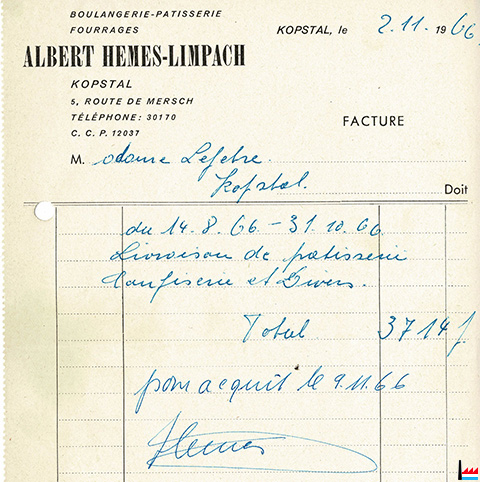 BOULANGERIE-PATISSERIE
FOURRAGES
ALBERT HEMES-LIMPACH
KOPSTAL
5, ROUTE DE MERSCH
TÉLÉPHONE: 30170
C. C. P. 12037
KOPSTAL, le 2.11. 1966
FACTURE
M. adame Lefebre.
Kopstal.
Doit
du 14.8.66.-31.10.66.
Livraison de pâtisserie
Confiserie et Divers.
Total 3714 f
pour acquit le 9.11.66
Hemes